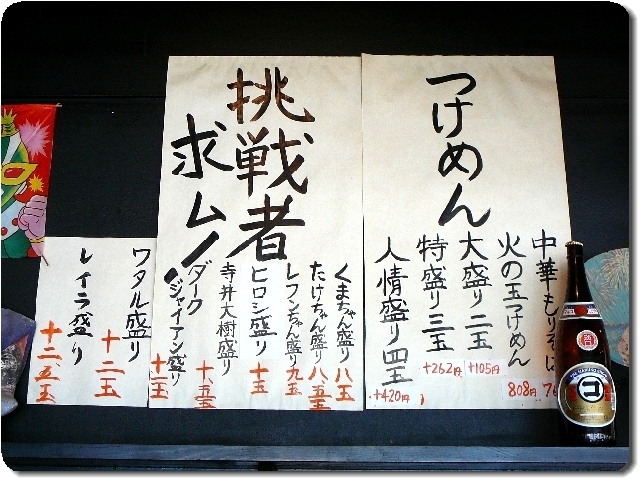 つけめん
中華もりそば
火の玉つけめん
808円
大盛り 二玉
+105円
特盛り 三玉
+262円
人情盛り 四玉
+420円
挑戦者
求ム!
くまちゃん盛り 八玉
たけちゃん盛り 八、五玉
レフンちゃん盛り 九玉
ヒロシ盛り 十玉
寺井大樹盛り 十、五玉
ダークジャイアン盛り
ワタル盛り 十二玉
レイラ盛り 十二、五玉
コ